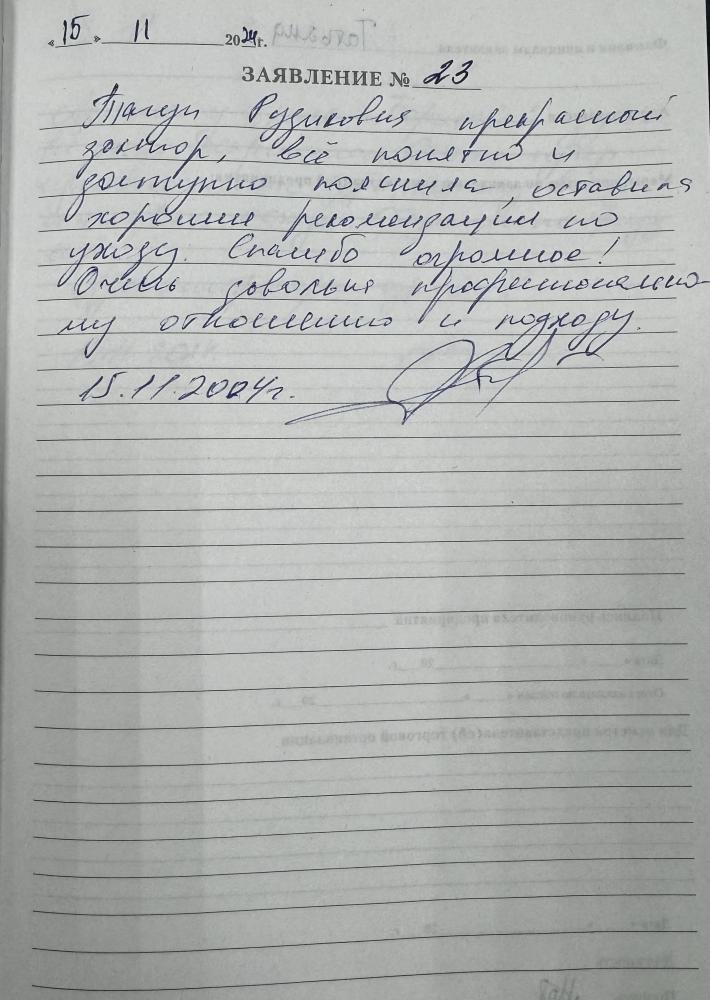 «15» 11 2024г.
ЗАЯВЛЕНИЕ № 23
прекрасный
доктор, всё понятно и
доступно пояснила, оставила
хорошие рекомендации по
уходу. Спасибо огромное!
Очень довольна профессионально-
му отношению и подходу.
15.11.2024г.